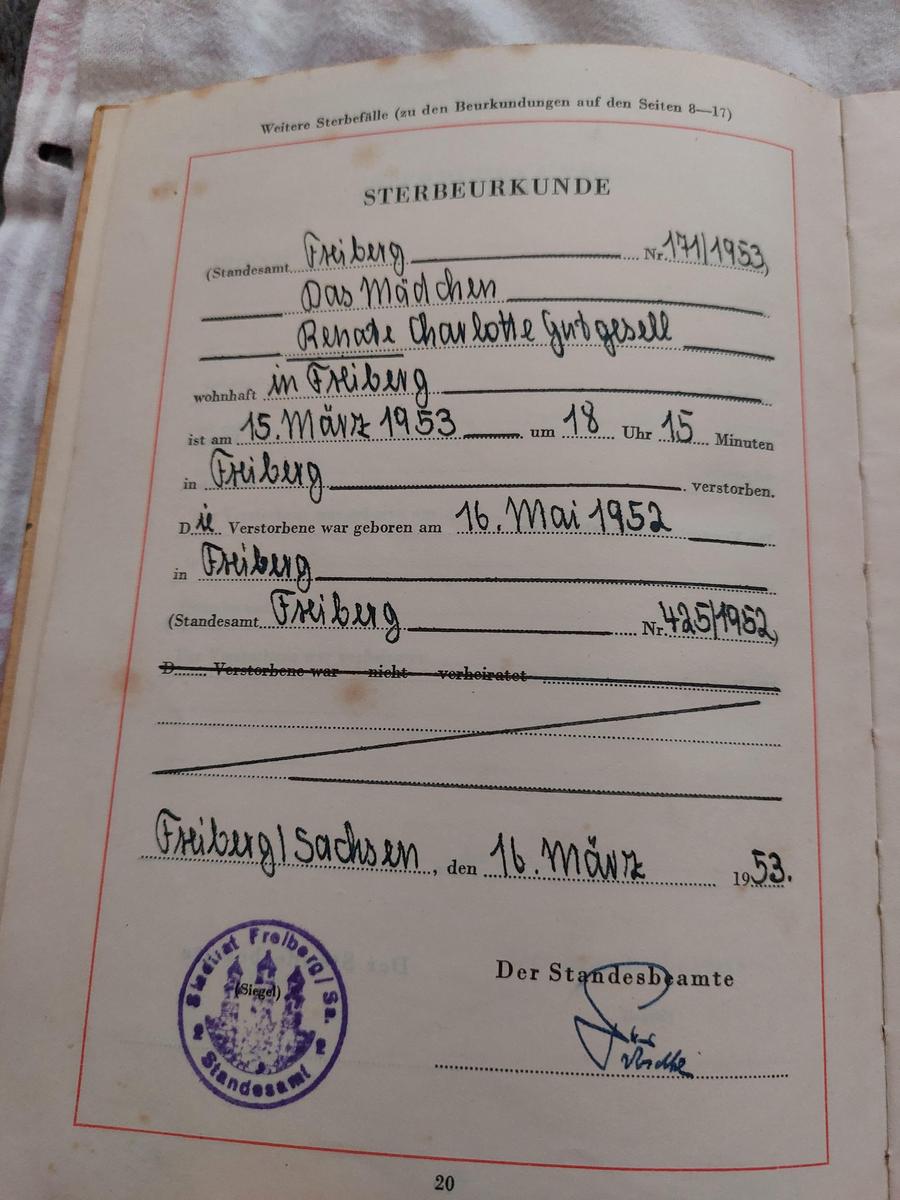 Weitere Sterbefälle (zu den Beurkundungen auf den Seiten 8—17)
STERBEURKUNDE
(Standesamt Freiberg Nr. 171/1953)
Das Mädchen
Renate Charlotte Gutgesell
wohnhaft in Freiberg
ist am 15. März 1953 um 18 Uhr 15 Minuten
in Freiberg verstorben.
Die Verstorbene war geboren am 16. Mai 1952
in Freiberg
(Standesamt Freiberg Nr. 425/1952)
D...... Verstorbene war nicht verheiratet
Freiberg/Sachsen, den 16. März 1953.
Stadtrat Freiberg/Sa.
(Siegel)
2 2
Standesamt
Der Standesbeamte
20